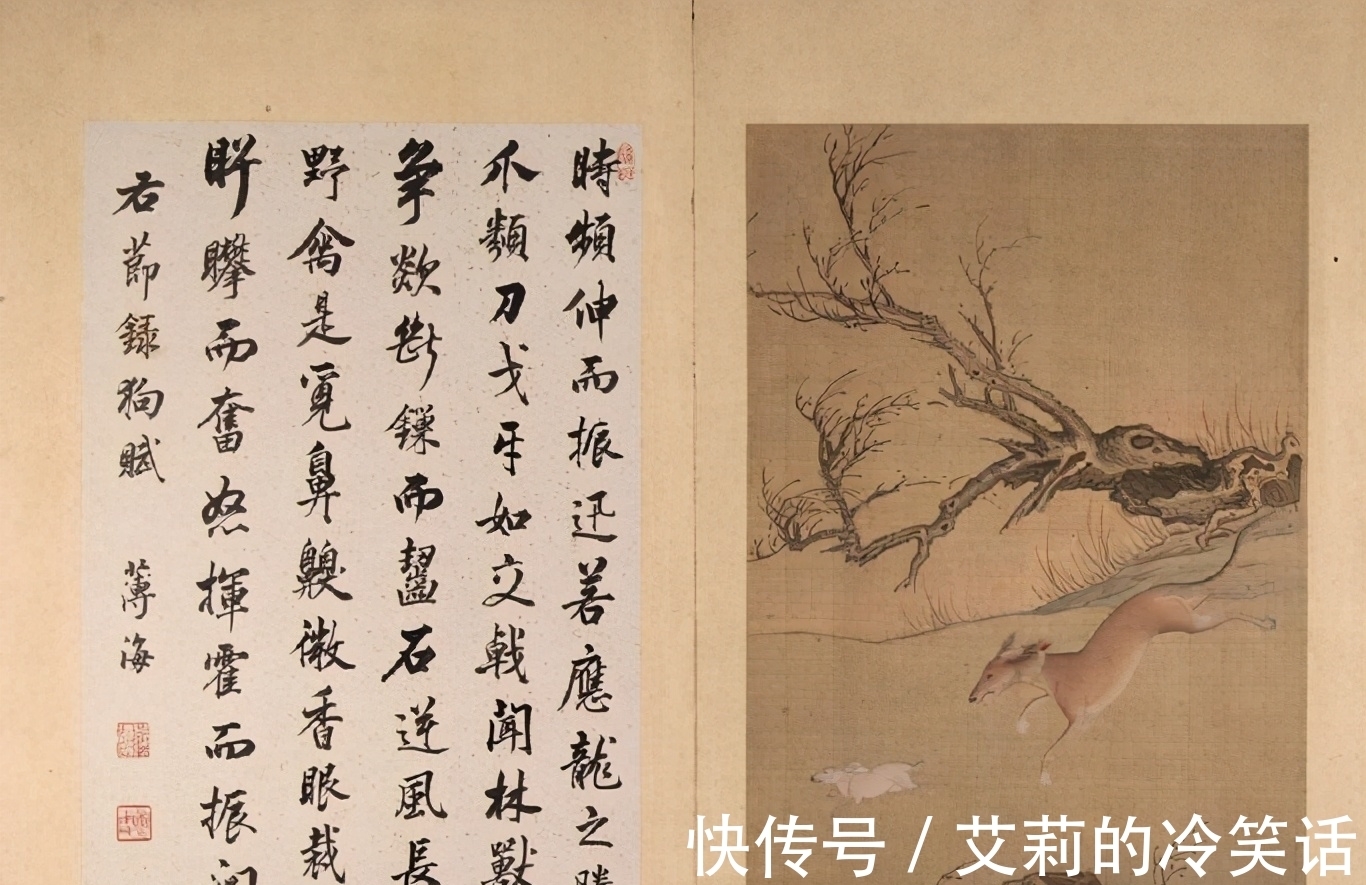 時頻伸而振迅若應龍之
爪類刀戈牙如交戟聞林獸
争欻斷鏁而齧石逆風長
野禽是覔鼻齅微香眼裁
盱矕而奮怒揮霍而振
右節録狗賦
薄海
快传号 / 艾莉的冷笑话